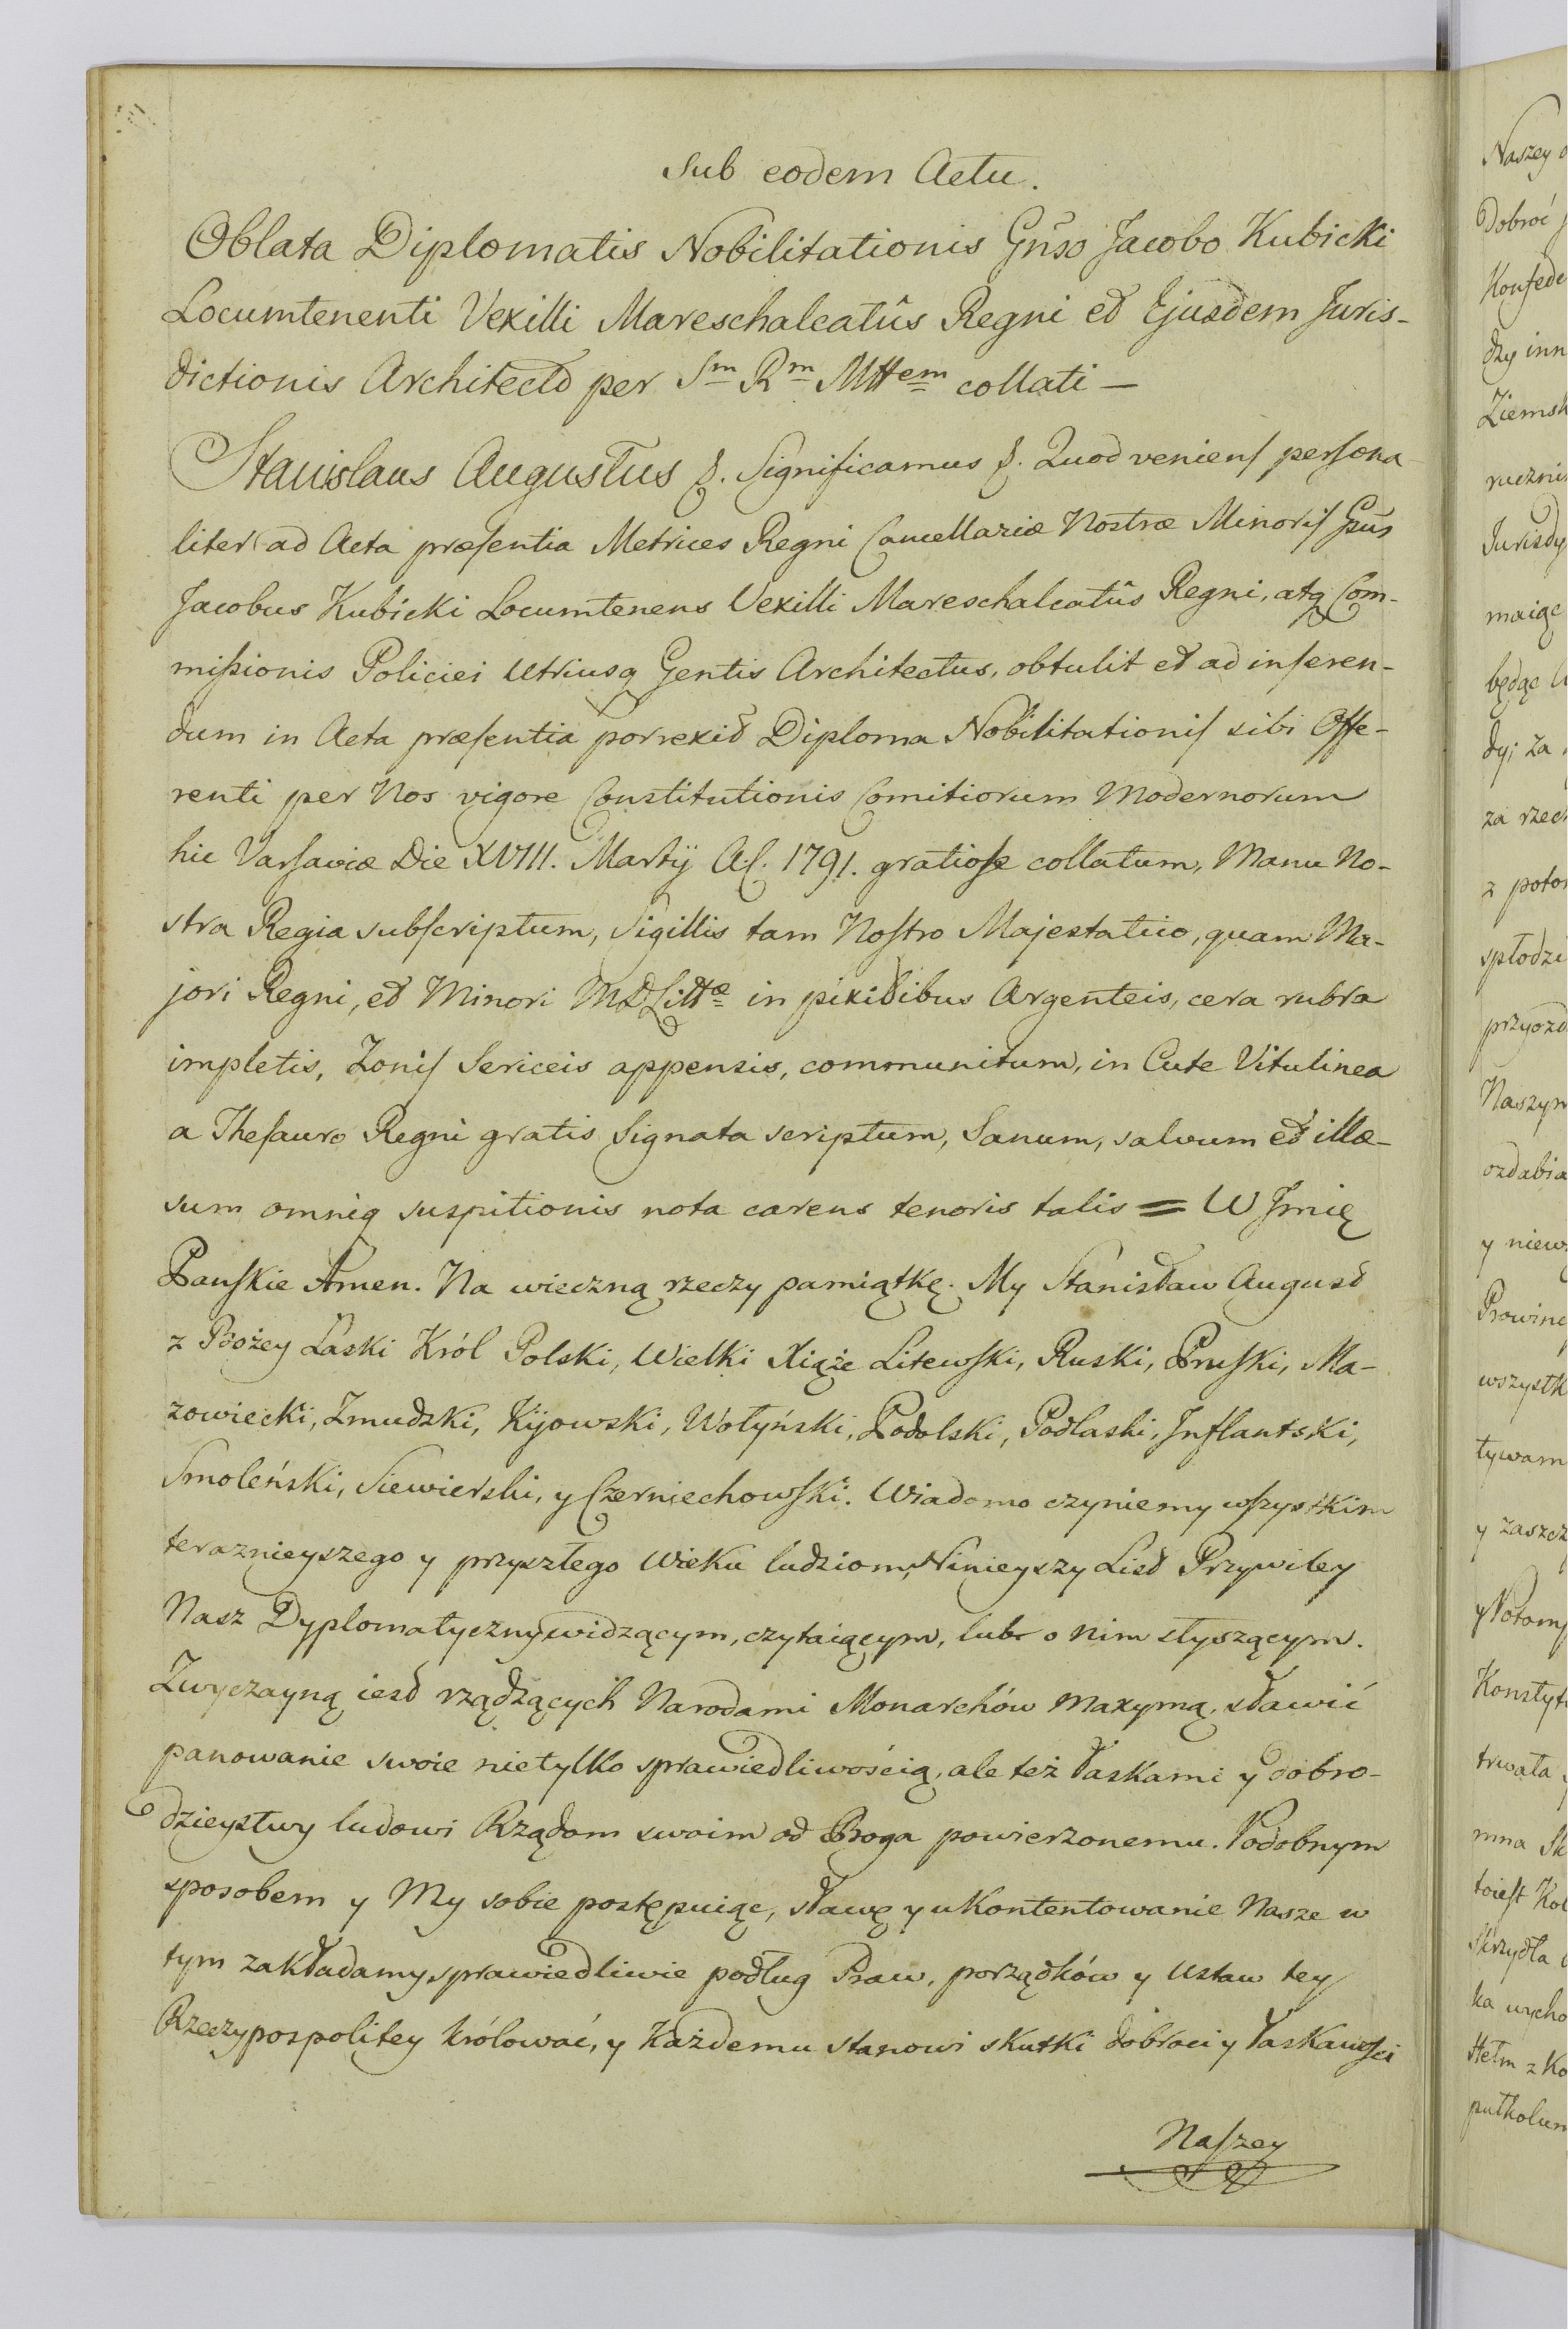 Sub eodem Actu.
Oblata Diplomatis Nobilitationis Gñso Jacobo Kubicki
Locumtenenti Vexilli Mareschalcatûs Regni et Ejusdem Juris-
dictionis Architecto per Sm Rm Mttem collati —
Stanislaus Augustus &. Significamus &. Quod venienſ perſona-
liter ad Acta præſentia Metrices Regni Cancellariæ Nostræ Minoriſ Gsũs
Jacobus Kubicki Locumtenens Vexilli Mareschalcatûs Regni, atq Com-
miſsionis Policiei Utriusq Gentis Architectus, obtulit et ad inſeren-
dum in Acta præſentia porrexit Diploma Nobilitationiſ sibi Offe-
renti per Nos vigore Constitutionis Comitiorum Modernorum
hic Varſaviæ Die XVIII. Martij A. 1791. gratioſe collatum, Manu No-
stra Regia subſcriptum, Sigillis tam Noſtro Majestatico, quam Ma-
jori Regni, et Minori MDLittæ in pixidibus Argenteis, cera rubra
impletis, Zoniſ Sericeis appensis, communitum, in Cute Vitulinea
a Theſauro Regni gratis Signata scriptum, Sanum, salvum et illæ-
sum omniq suspitionis nota carens tenoris talis = W Jmię
Panſkie Amen. Na wieczną rzeczy pamiątkę. My Stanisław August
z Bożey Łaski Król Polski, Wielki Xiąże Litewſki, Ruski, Pruſki, Ma-
zowiecki, Zmudzki, Kijowski, Wołyński, Podolski, Podlaski, Jnflantski,
Smoleński, Siewierski, y Czerniechowſki. Wiadomo czyniemy wſzystkim
teraznieyszego y przyszłego Wieku ludziom, Ninieyszy List Przywiley
Nasz Dyplomatyczny widzącym, czytaiącym, lub o nim słyszącym.
Zwyczayną iest rządzących Narodami Monarchów maxymą, sławić
panowanie swoie nietylko sprawiedliwością, ale też łaskami y dobro-
dzieystwy ludowi Rządom swoim od Boga powierzonemu. Podobnym
sposobem y My sobie postępuiąc, sławę y ukontentowanie Nasze w
tym zakładamy sprawiedliwie podług Praw, porządków y Ustaw tey
Rzeczypospolitey królować, y każdemu stanowi skutki dobroci y łaskawoſci
Naſzey
Naszey
Dobroć
Konfede
dzy inn
Ziemsk
Jurisdy
maiąc
będąc
dy; za
za rzec
z poto
spłodzi
przyozd
Naszym
ozdabia
y niew
Prowinc
wszystk
tywam
y zaszcz
y Potom
Konstyt
trwała
mna Sk
toieſt Kol
Skrzydła
ka wycho
Hełm z Ko